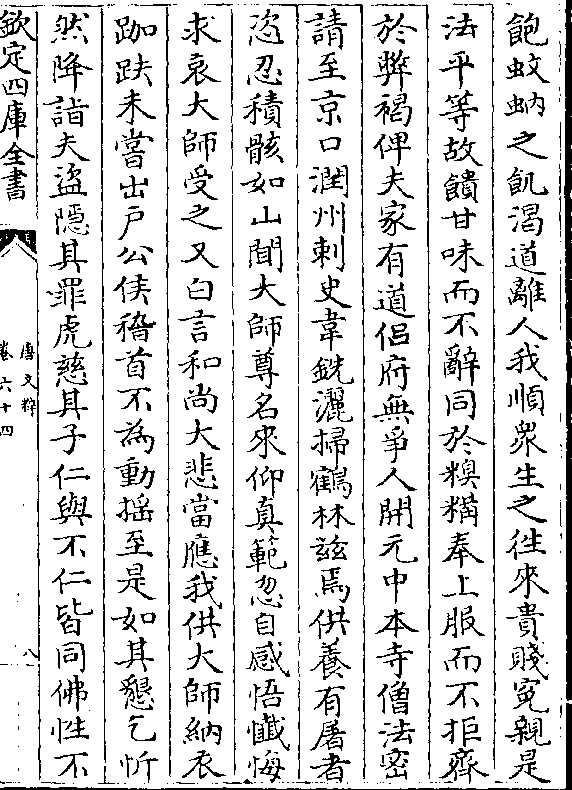 飽蚊蚋之飢渴道離人我順衆生之徃來貴賤寃親是
法平等故饋甘味而不辭同於糗糒奉上服而不拒齊
於弊褐俾夫家有道侣府無爭人開元中本寺僧法密
請至京口潤州刺史韋銑灑掃鶴林兹焉供養有屠者
恣忍積骸如山聞大師尊名來仰真範忽自感悟懴悔
求哀大師受之又白言和尚大悲當應我供大師納衣
跏趺未嘗出户公侯稽首不為動揺至是如其懇乞忻
然降詣夫盜隠其罪虎慈其子仁與不仁皆同佛性不
欽定四庫全書
唐文粹
卷六十四
八